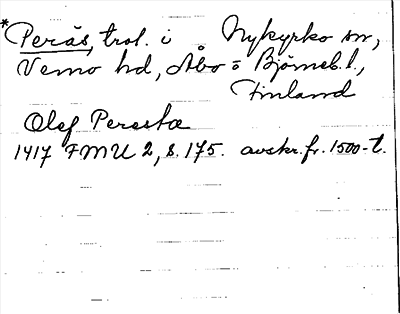 *Peräs, trol. i Nykyrko sn,
Vemo hd, Åbo o Björneb. l.,
Finland
Olef Peresta
1417 FMU 2, s. 175. avskr. fr. 1500-t.